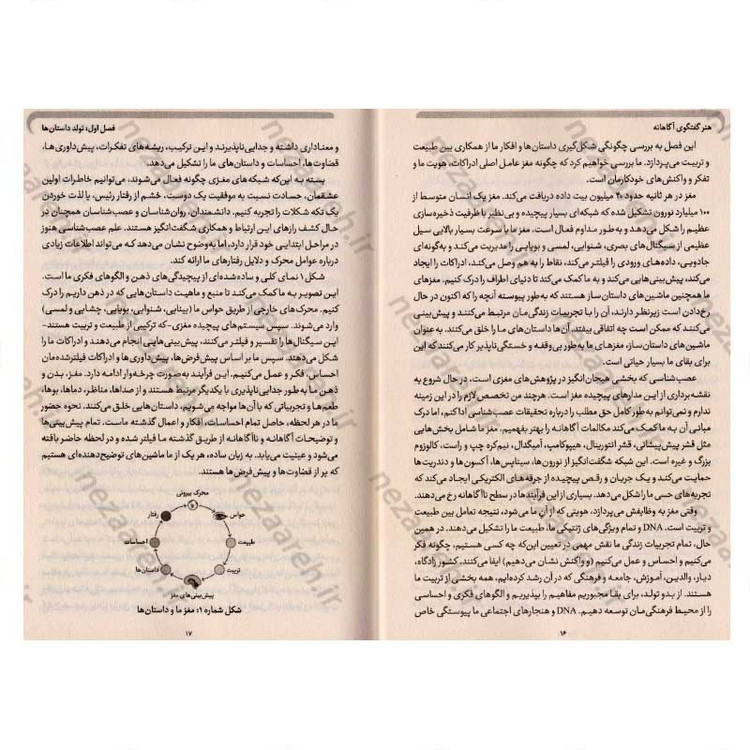 هنر گفتگوی آگاهانه
این فصل به بررسی چگونگی شکل‌گیری داستان‌ها و افکار ما از همکاری بین طبیعت
و تربیت می‌پردازد. ما بررسی خواهیم کرد که چگونه مغز عامل اصلی ادراکات، هویت ما و
تفکر و واکنش‌های خودکارمان است.
مغز در هر ثانیه حدود ۲۰ میلیون بیت داده دریافت می‌کند. مغز یک انسان متوسط از
۱۰۰ میلیارد نورون تشکیل شده که شبکه‌ای بسیار پیچیده و بی‌نظیر با ظرفیت ذخیره‌سازی
عظیم را شکل می‌دهد و به‌طور مداوم فعال است. مغز ما با سرعت بسیار بالایی سیل
عظیمی از سیگنال‌های بصری، شنوایی، لمسی و بویایی را مدیریت می‌کند و به‌گونه‌ای
جادویی، داده‌های ورودی را فیلتر می‌کند، نقاط را به هم وصل می‌کند، ادراکات را ایجاد
می‌کند، پیش‌بینی‌هایی می‌کند و به ما کمک می‌کند تا دنیای اطراف را درک کنیم. مغزهای
ما همچنین ماشین‌های داستان‌ساز هستند که به‌طور پیوسته آنچه را که اکنون در حال
رخ‌دادن است زیرنظر دارند، آن را با تجربیات زندگی‌مان مرتبط می‌کنند و پیش‌بینی
می‌کنند که ممکن است چه اتفاقی بیفتد. آن‌ها داستان‌های ما را خلق می‌کنند. به‌عنوان
ماشین‌های داستان‌ساز، مغزهای ما به‌طور بی‌وقفه و خستگی‌ناپذیر کار می‌کنند که این
برای بقای ما بسیار حیاتی است.
عصب‌شناسی که بخشی هیجان‌انگیز در پژوهش‌های مغزی است، در حال شروع به
نقشه‌برداری از این مدارهای پیچیده مغز است. هرچند من تخصص لازم را در این زمینه
ندارم و نمی‌توانم به‌طور کامل حق مطلب را درباره تحقیقات عصب‌شناسی ادا کنم، اما درک
مبانی آن به ما کمک می‌کند تا مکالمات آگاهانه را بهتر بفهمیم. مغز ما شامل بخش‌هایی
مثل قشر پیش‌پیشانی، قشر انتورینال، هیپوکامپ، آمیگدال، نیم‌کره چپ و راست، کالوزوم
بزرگ و غیره است. این شبکه شگفت‌انگیز از نورون‌ها، سیناپس‌ها، آکسون‌ها و دندریت‌ها
حمایت می‌کند و یک جریان و رقص پیچیده از جرقه‌های الکتریکی ایجاد می‌کند که
تجربه‌های حسی ما را شکل می‌دهد. بسیاری از این فرآیندها در سطح ناآگاهانه رخ می‌دهند.
وقتی مغز به وظایفش می‌پردازد، هویتی که از آن ما می‌شود، نتیجه تعامل بین طبیعت
و تربیت است. DNA و تمام ویژگی‌های ژنتیکی ما، طبیعت ما را تشکیل می‌دهند. در همین
حال، تمام تجربیات زندگی ما نقش مهمی در تعیین این‌که چه کسی هستیم، چگونه فکر
می‌کنیم و احساس و عمل می‌کنیم (و واکنش نشان می‌دهیم) ایفا می‌کنند. کشور زادگاه،
دیار، والدین، آموزش، جامعه و فرهنگی که در آن رشد کرده‌ایم، همه بخشی از تربیت ما
هستند. از بدو تولد، برای بقا مجبوریم مفاهیم را بپذیریم و الگوهای فکری و احساسی
را از محیط فرهنگی‌مان توسعه دهیم. DNA و هنجارهای اجتماعی ما پیوستگی خاص
۱۶
فصل اول: تولد داستان‌ها
و معناداری داشته و جدایی‌ناپذیرند و این ترکیب، ریشه‌های تفکرات، پیش‌داوری‌ها،
قضاوت‌ها، احساسات و داستان‌های ما را تشکیل می‌دهد.
بسته به این‌که شبکه‌های مغزی چگونه فعال می‌شوند، می‌توانیم خاطرات اولین
عشقمان، حسادت نسبت به موفقیت یک دوست، خشم از رفتار رئیس، یا لذت خوردن
یک تکه شکلات را تجربه کنیم. دانشمندان، روان‌شناسان و عصب‌شناسان همچنان در
حال کشف رازهای این ارتباط و همکاری شگفت‌انگیز هستند. علم عصب‌شناسی هنوز
در مراحل ابتدایی خود قرار دارد، اما به‌وضوح نشان می‌دهد که می‌تواند اطلاعات زیادی
درباره عوامل محرک و دلایل رفتارهای ما ارائه کند.
شکل۱ نمای کلی و ساده‌شده‌ای از پیچیدگی‌های ذهن و الگوهای فکری ما است.
این تصویر به ما کمک می‌کند تا منبع و ماهیت داستان‌هایی که در ذهن داریم را درک
کنیم. محرک‌های خارجی از طریق حواس ما (بینایی، شنوایی، بویایی، چشایی و لمسی)
وارد می‌شوند. سپس سیستم‌های پیچیده مغزی-که ترکیبی از طبیعت و تربیت هستند-
این سیگنال‌ها را تفسیر و فیلتر می‌کنند، پیش‌بینی‌هایی انجام می‌دهند و ادراکات ما را
شکل می‌دهند. سپس ما بر اساس پیش‌فرض‌ها، پیش‌داوری‌ها و ادراکات فیلترشده‌مان
احساس، فکر و عمل می‌کنیم. این فرآیند به‌صورت چرخه‌وار ادامه دارد. مغز، بدن و
ذهن ما به‌طور جدایی‌ناپذیری با یکدیگر مرتبط هستند و از صداها، مناظر، دماها، بوها،
طعم‌ها و تجربیاتی که با آن‌ها مواجه می‌شویم، داستان‌هایی خلق می‌کنند. نحوه حضور
ما در هر لحظه، حاصل تمام احساسات، افکار و اعمال گذشته ماست. تمام پیش‌بینی‌ها
و توضیحات آگاهانه و ناآگاهانه از طریق گذشته ما فیلتر شده و در لحظه حاضر بافته
می‌شود و عینیت می‌یابد. به زبان ساده، هر یک از ما ماشین‌های توضیح‌دهنده‌ای هستیم
که پر از قضاوت‌ها و پیش‌فرض‌ها هستند.
محرک بیرونی
حواس
طبیعت
تربیت
پیش‌بینی‌های مغز
داستان‌ها
احساسات
رفتار
شکل شماره ۱: مغز ما و داستان‌ها
۱۷
nezaareh.ir